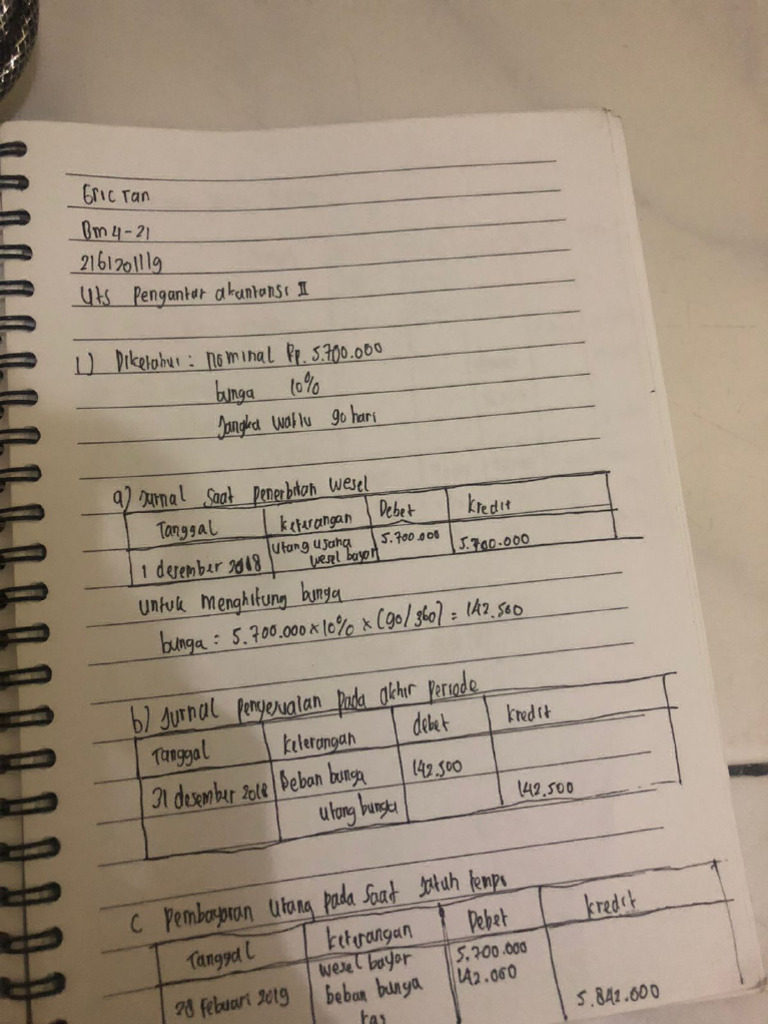 Eric Tan
Bm 4-21
2161201119
Uts Pengantar akuntansi II
1) Diketahui : nominal Rp. 5.700.000
bunga 10%
Jangka waktu 90 hari
a) Jurnal saat penerbitan wesel
Tanggal keterangan Debet kredit
1 desember 2018 utang usaha 5.700.000 5.700.000
wesel bayar
untuk menghitung bunga
bunga = 5.700.000 x 10% x (90/360) = 142.500
b) Jurnal penyesuaian pada akhir periode
Tanggal keterangan debet kredit
31 desember 2018 beban bunga 142.500
utang bunga 142.500
c pembayaran utang pada saat jatuh tempo
Tanggal keterangan Debet kredit
wesel bayar 5.700.000
28 februari 2019 beban bunga 142.000 5.842.000
kas